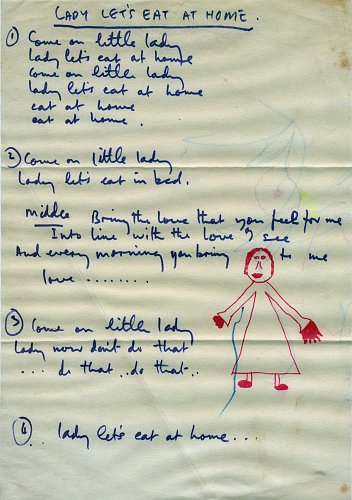 LADY LET'S EAT AT HOME.
① Come on little lady
lady let's eat at home
come on little lady
lady let's eat at home
eat at home
eat at home.
② Come on little lady
lady let's eat in bed.
Middle Bring the love that you feel for me
Into line with the love I see
And every morning you bring to me
love .........
③ Come on little lady
lady now don't do that
... do that .. do that ..
④ lady let's eat at home ...